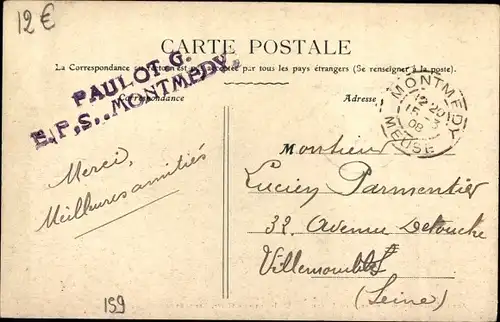 12€
CARTE POSTALE
La Correspondance au recto n'est pas acceptée par tous les pays étrangers (Se renseigner à la poste).
PAULOT.G.
E.P.S..MONTMEDY.
Correspondance
Adresse
MONTMÉDY
12 20
15-3
08
MEUSE
Merci,
Meilleures amitiés
Monsieur
Lucien Parmentier
32, Avenue Detouche
Villemomble
(Seine)
159